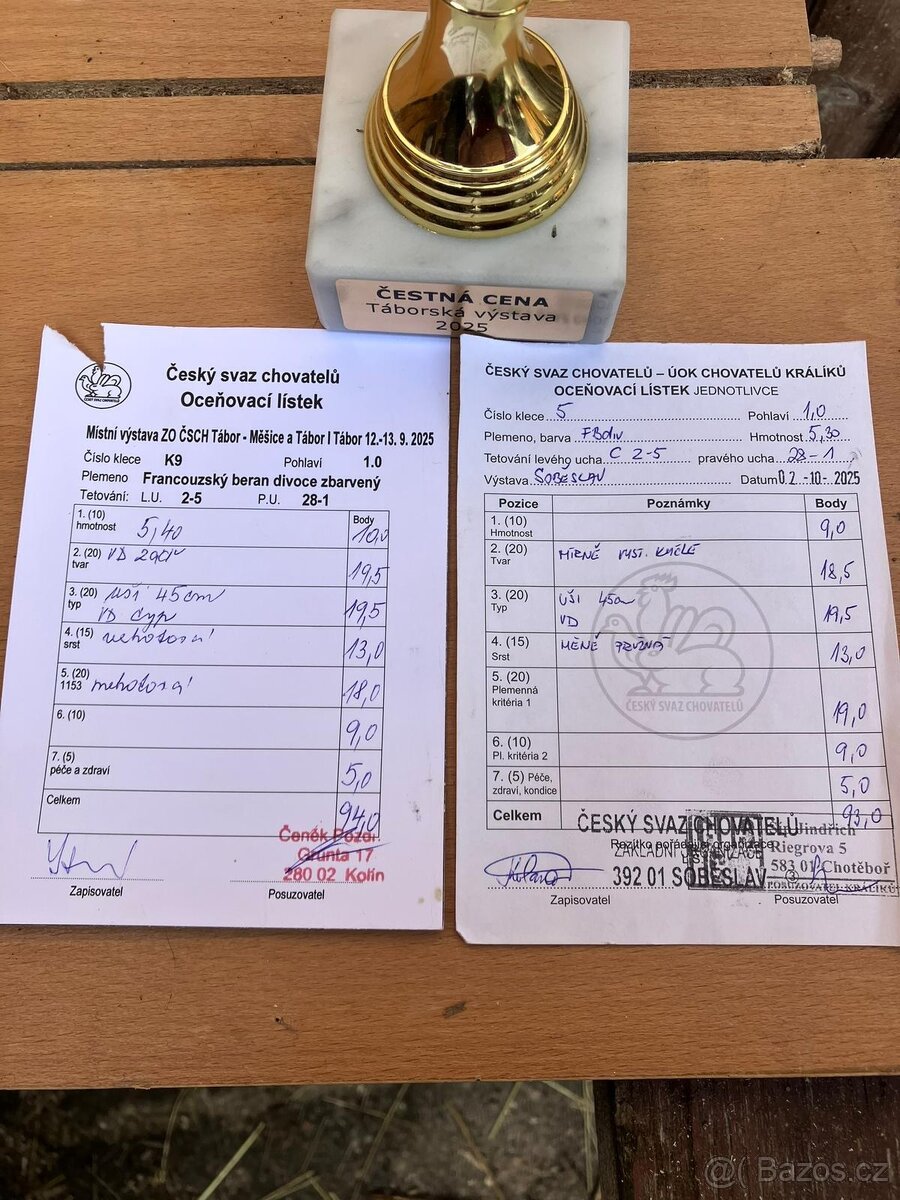 ČESTNÁ CENA
Táborská výstava
2025
Český svaz chovatelů
Oceňovací lístek
ČESKÝ SVAZ CHOVATELŮ
Místní výstava ZO ČSCH Tábor - Měšice a Tábor I Tábor 12.-13. 9. 2025
Číslo klece K9 Pohlaví 1.0
Plemeno Francouzský beran divoce zbarvený
Tetování: L.U. 2-5 P.U. 28-1
Body
1. (10) hmotnost 5,40 10,0
2. (20) tvar VD 19,5
3. (20) typ uši 45cm VD 19,5
4. (15) srst 13,0
5. (20) 1153 18,0
6. (10) 9,0
7. (5) péče a zdraví 5,0
Celkem 94,0
Čeněk
Grunta 17
280 02 Kolín
Zapisovatel Posuzovatel
ČESKÝ SVAZ CHOVATELŮ – ÚOK CHOVATELŮ KRÁLÍKŮ
OCEŇOVACÍ LÍSTEK JEDNOTLIVCE
Číslo klece 5 Pohlaví 1,0
Plemeno, barva FBdiv Hmotnost 5,30
Tetování levého ucha C 2-5 pravého ucha 28-1
Výstava SOBĚSLAV Datum 02.-10-.2025
Pozice Poznámky Body
1. (10) Hmotnost 9,0
2. (20) Tvar MÍRNĚ VYST. KYČLE 18,5
3. (20) Typ UŠI 45cm VD 19,5
4. (15) Srst MÉNĚ PRUŽNÁ 13,0
5. (20) Plemenná kritéria 1 19,0
6. (10) Pl. kritéria 2 9,0
7. (5) Péče, zdraví, kondice 5,0
Celkem 93,0
ČESKÝ SVAZ CHOVATELŮ
ČESKÝ SVAZ CHOVATELŮ
Razítko pořádající organizace
ZÁKLADNÍ ORGANIZACE
392 01 SOBĚSLAV
Jindřich
Riegrova 5
583 01 Chotěboř
POSUZOVATEL KRÁLÍKŮ
Zapisovatel Posuzovatel
@( Bazos.cz